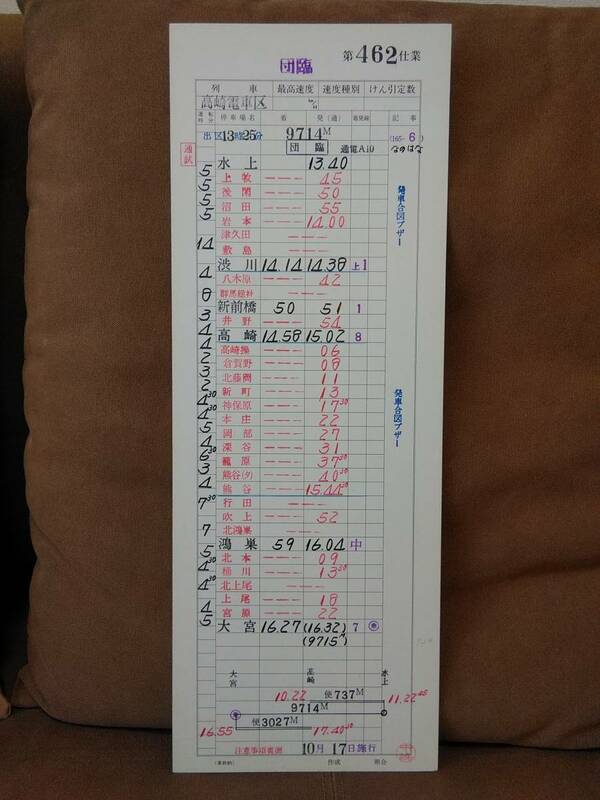 第462仕業
団臨
列車 最高速度 速度種別 けん引定数
高崎電車区
運転時分 停車場名 着 発(通) 着発線 記事
出区13時25分 9714M (165-6)
通試 団臨 通電A10
水上 13.40
5 上牧 --- 45
5 後閑 --- 50
5 沼田 --- 55
5 岩本 --- 14.00
津久田 ---
14 敷島 ---
渋川 14.14 14.38 上1
4 八木原 --- 42
群馬総社 ---
8 新前橋 50 51 1
3 井野 --- 54
4 高崎 14.58 15.02 8
4 高崎操 --- 06
2 倉賀野 --- 08
3 北藤岡 --- 11
2 新町 --- 13
4 30 神保原 --- 17 30
4 30 本庄 --- 22
5 岡部 --- 27
4 深谷 --- 31
6 30 籠原 --- 37 30
3 熊谷(タ) --- 40 30
4 熊谷 --- 15.44 30
行田 ---
7 30 吹上 --- 52
北鴻巣 ---
7 鴻巣 59 16.04 中
5 北本 --- 09
4 30 桶川 --- 13 30
北上尾 ---
4 30 上尾 --- 18
4 宮原 --- 22
5 大宮 16.27 (16.32) 7
(9715M)
発車合図ブザー
発車合図ブザー
大宮 高崎 水上
10.22 便737M 11.22 45
9714M
便3027M
16.55 17.40
注意事項裏面 10月17日施行
作成 照合